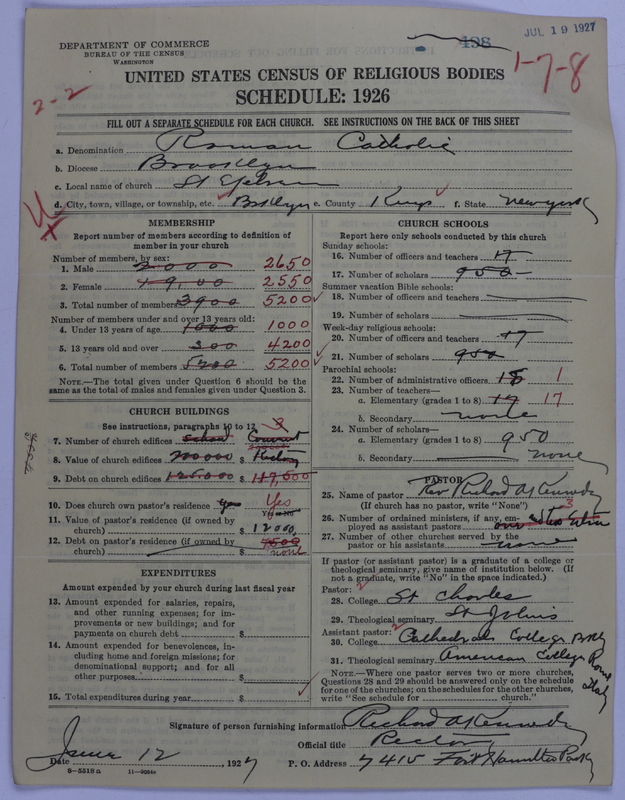 JUL 19 1927
DEPARTMENT OF COMMERCE
BUREAU OF THE CENSUS
WASHINGTON
498
1-7-8
2-2
UNITED STATES CENSUS OF RELIGIOUS BODIES
SCHEDULE: 1926
FILL OUT A SEPARATE SCHEDULE FOR EACH CHURCH. SEE INSTRUCTIONS ON THE BACK OF THIS SHEET
a. Denomination Roman Catholic
b. Diocese Brooklyn
c. Local name of church St
d. City, town, village, or township, etc. Brooklyn e. County Kings f. State New York
MEMBERSHIP
Report number of members according to definition of
member in your church
Number of members, by sex:
1. Male 2000 2650
2. Female 1900 2550
3. Total number of members 3900 5200
Number of members under and over 13 years old:
4. Under 13 years of age 1000 1000
5. 13 years old and over 4200
6. Total number of members 5200 5200
NOTE.—The total given under Question 6 should be the
same as the total of males and females given under Question 3.
CHURCH BUILDINGS
See instructions, paragraphs 10 to 12
7. Number of church edifices school Convent
8. Value of church edifices $ 200000 Rectory
9. Debt on church edifices 125000 $ 117,500
10. Does church own pastor's residence yes Yes
Yes or No
11. Value of pastor's residence (if owned by
church) $ 12000
12. Debt on pastor's residence (if owned by
church) $ none
EXPENDITURES
Amount expended by your church during last fiscal year
13. Amount expended for salaries, repairs,
and other running expenses; for im-
provements or new buildings; and for
payments on church debt $
14. Amount expended for benevolences, in-
cluding home and foreign missions; for
denominational support; and for all
other purposes $
15. Total expenditures during year $
CHURCH SCHOOLS
Report here only schools conducted by this church
Sunday schools:
16. Number of officers and teachers 17
17. Number of scholars 950
Summer vacation Bible schools:
18. Number of officers and teachers
19. Number of scholars
Week-day religious schools:
20. Number of officers and teachers 17
21. Number of scholars 950
Parochial schools:
22. Number of administrative officers 18 1
23. Number of teachers—
a. Elementary (grades 1 to 8) 17 17
b. Secondary none
24. Number of scholars—
a. Elementary (grades 1 to 8) 950
b. Secondary none
PASTOR
25. Name of pastor Rev Richard A Kennedy
(If church has no pastor, write "None")
26. Number of ordained ministers, if any, em-
ployed as assistant pastors 3
27. Number of other churches served by the
pastor or his assistants none
If pastor (or assistant pastor) is a graduate of a college or
theological seminary, give name of institution below. (If
not a graduate, write "No" in the space indicated.)
Pastor: 2
28. College St Charles
29. Theological seminary St Johns
Assistant pastor: 2
30. College Cathedral College Bkly
31. Theological seminary American College Rome Italy
NOTE.—Where one pastor serves two or more churches,
Questions 28 and 29 should be answered only on the schedule
for one of the churches; on the schedules for the other churches,
write "See schedule for ________ church."
Signature of person furnishing information Richard A Kennedy
Official title Rector
Date 12, 1927 P. O. Address 7415 Fort Hamilton Parky
8—5518a 11—9264a